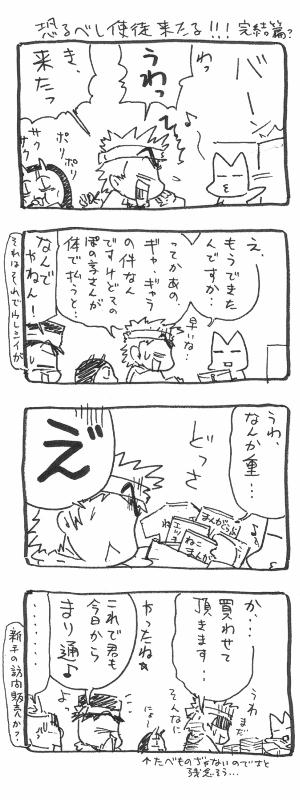 恐るべし使徒来たる!!! 完結篇?
バン
わっ
うわっ
き、
来たっ
♪
ポリ
ポリ
サク
サク
え、
もうできた
んですか…
早いな…
ってかあの
ギャ、ギャラ
の件なん
ですけどその
ぽの亨さんが
体で払うと…
なんで
やねん!
それはそれでウレシイが
うわ、
なんか重…
♪
どっさ
まんがらぶ
ねこ
まんが
エッチ
ね
え゛
か、…
買わせて
頂きます…
うわ
まだ
そんなに
やったねぁ
にょ〜
これで君も
今日から
まり通♪
よっ
・・・・・
新手の訪問販売か?
↑たべものぢゃないのでさと
残念そう…